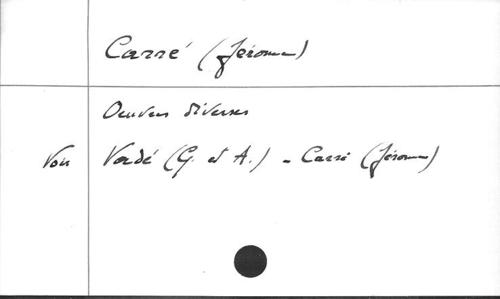 Carré (Jérome)
Oeuvres diverses
Voir Verdé (G. et A.) - Carré (Jérome)